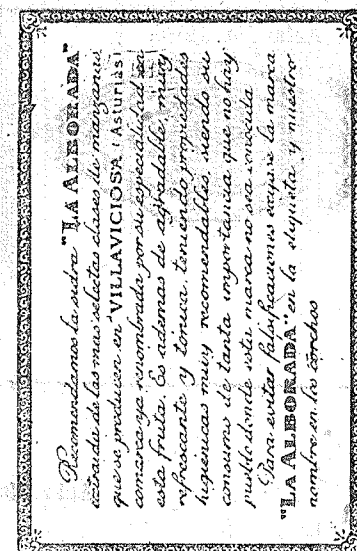 Recomendamos la sidra "LA ALBORADA"
extraida de las mas selectas clases de manzanas
que se producen en VILLAVICIOSA (Asturias)
comarca ya renombrada por su especialidad en
esta fruta. Es ademas de agradable, muy
refrescante y tónica, teniendo propiedades
higiénicas muy recomendables, siendo su
consumo de tanta importancia que no hay
pueblo donde esta marca no sea conocida.
Para evitar falsificaciones exijase la marca
"LA ALBORADA" en la etiqueta y nuestro
nombre en los corchos